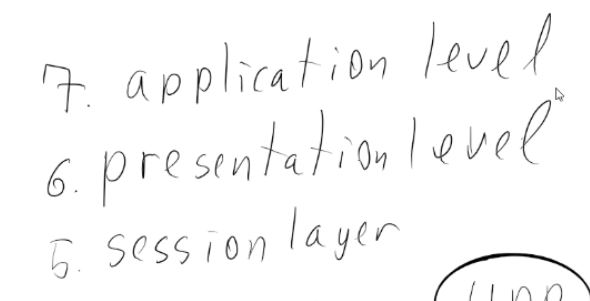 7. application level
6. presentation level
5. session layer